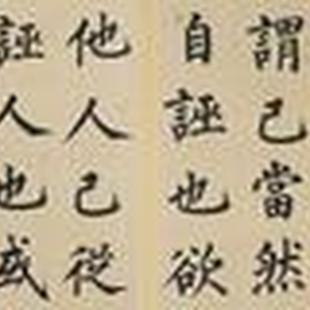 謂己當然
自誣也欲
他人己從
誣人也或